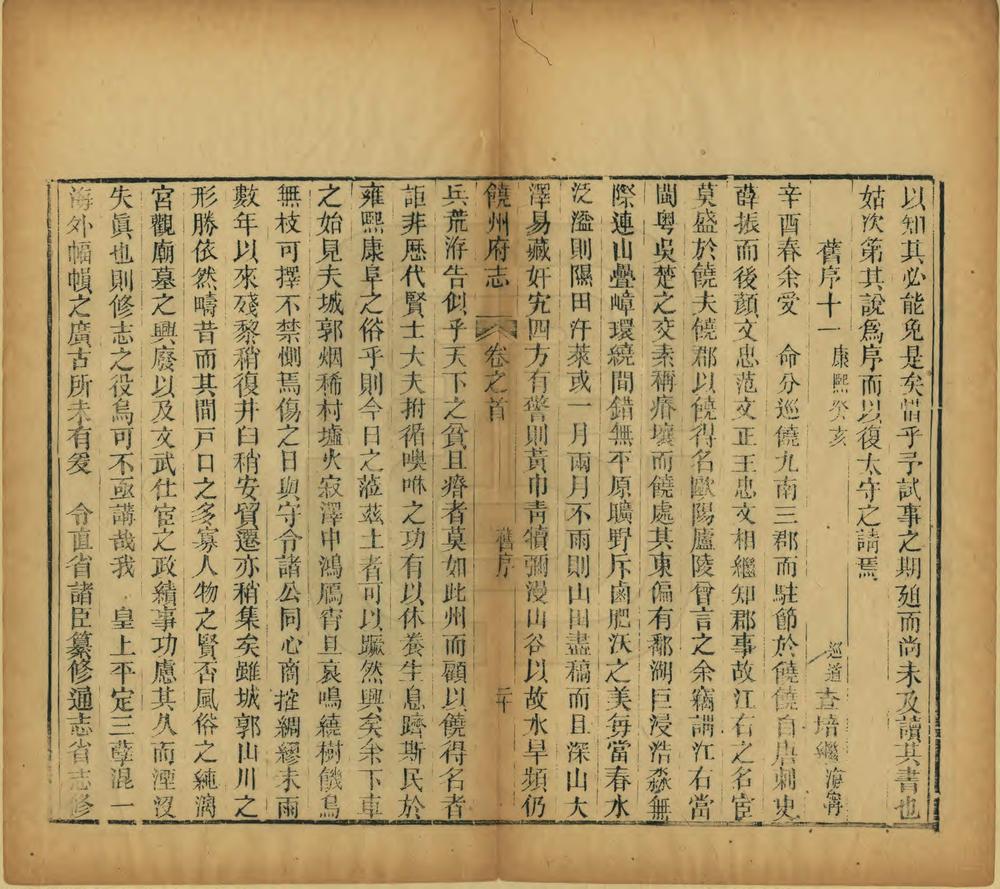 以知其必能免是矣惜乎予試事之期廹而尚未及讀其書也
姑次第其說爲序而以復太守之請焉
舊序十一 康熙癸亥 巡道查培繼海寧
辛酉春余受 命分巡饒九南三郡而駐節於饒饒自唐刺史
薛振而後顏文忠范文正王忠文相繼知郡事故江右之名宦
莫盛於饒夫饒郡以饒得名歐陽廬陵曾言之余竊謂江右當
閩粤吳楚之交素稱瘠壤而饒處其東偏有鄱湖巨浸浩淼無
際連山疊嶂環繞間錯無平原曠野斥鹵肥沃之美毎當春水
泛溢則隰田汙萊或一月兩月不雨則山田盡稿而且深山大
澤易藏奸宄四方有警則黃巾青犢彌漫山谷以故水旱頻仍
饒州府志 卷之首 舊序 二十
兵荒洊告似乎天下之貧且瘠者莫如此州而顧以饒得名者
詎非歷代賢士大夫拊循噢咻之功有以休養生息躋斯民於
雍熙康阜之俗乎則今日之蒞茲土者可以蹶然興矣余下車
之始見夫城郭烟稀村墟火寂澤中鴻鴈宵旦哀鳴繞樹饑烏
無枝可擇不禁惻焉傷之日與守令諸公同心商搉綢繆未雨
數年以來殘黎稍復井臼稍安貿遷亦稍集矣雖城郭山川之
形勝依然疇昔而其間戸口之多寡人物之賢否風俗之純漓
宮觀廟墓之興廢以及文武仕宦之政績事功慮其久而湮沒
失眞也則修志之役烏可不亟講哉我 皇上平定三孽混一
海外幅幀之廣古所未有爰 令直省諸臣纂修通志省志修